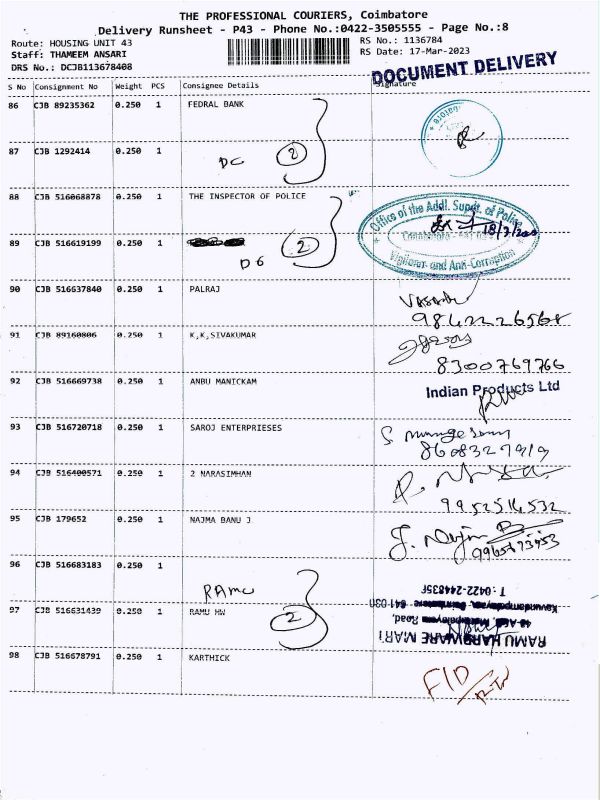 THE PROFESSIONAL COURIERS, Coimbatore
Delivery Runsheet - P43 - Phone No.:0422-3505555 - Page No.:8
Route: HOUSING UNIT 43
RS No.: 1136784
Staff: THAMEEM ANSARI
RS Date: 17-Mar-2023
DRS No.: DCJB113678408
DOCUMENT DELIVERY
S No Consignment No Weight PCS Consignee Details Signature
86 CJB 89235362 0.250 1 FEDRAL BANK
87 CJB 1292414 0.250 1
DC 2
88 CJB 516068878 0.250 1 THE INSPECTOR OF POLICE
Office of the Addl. Supdt. of Police
Vigilance and Anti-Corruption
89 CJB 516619199 0.250 1
2
90 CJB 516637840 0.250 1 PALRAJ
9842226568
91 CJB 89160806 0.250 1 K,K,SIVAKUMAR
8300769766
92 CJB 516669738 0.250 1 ANBU MANICKAM
Indian Products Ltd
93 CJB 516720718 0.250 1 SAROJ ENTERPRIESES
8608327919
94 CJB 516400571 0.250 1 2 NARASIMHAN
9952514532
95 CJB 179652 0.250 1 NAJMA BANU J
96 CJB 516683183 0.250 1
RAMU
97 CJB 516631439 0.250 1 RAMU HW
2
RAMU HARDWARE MART
98 CJB 516678791 0.250 1 KARTHICK